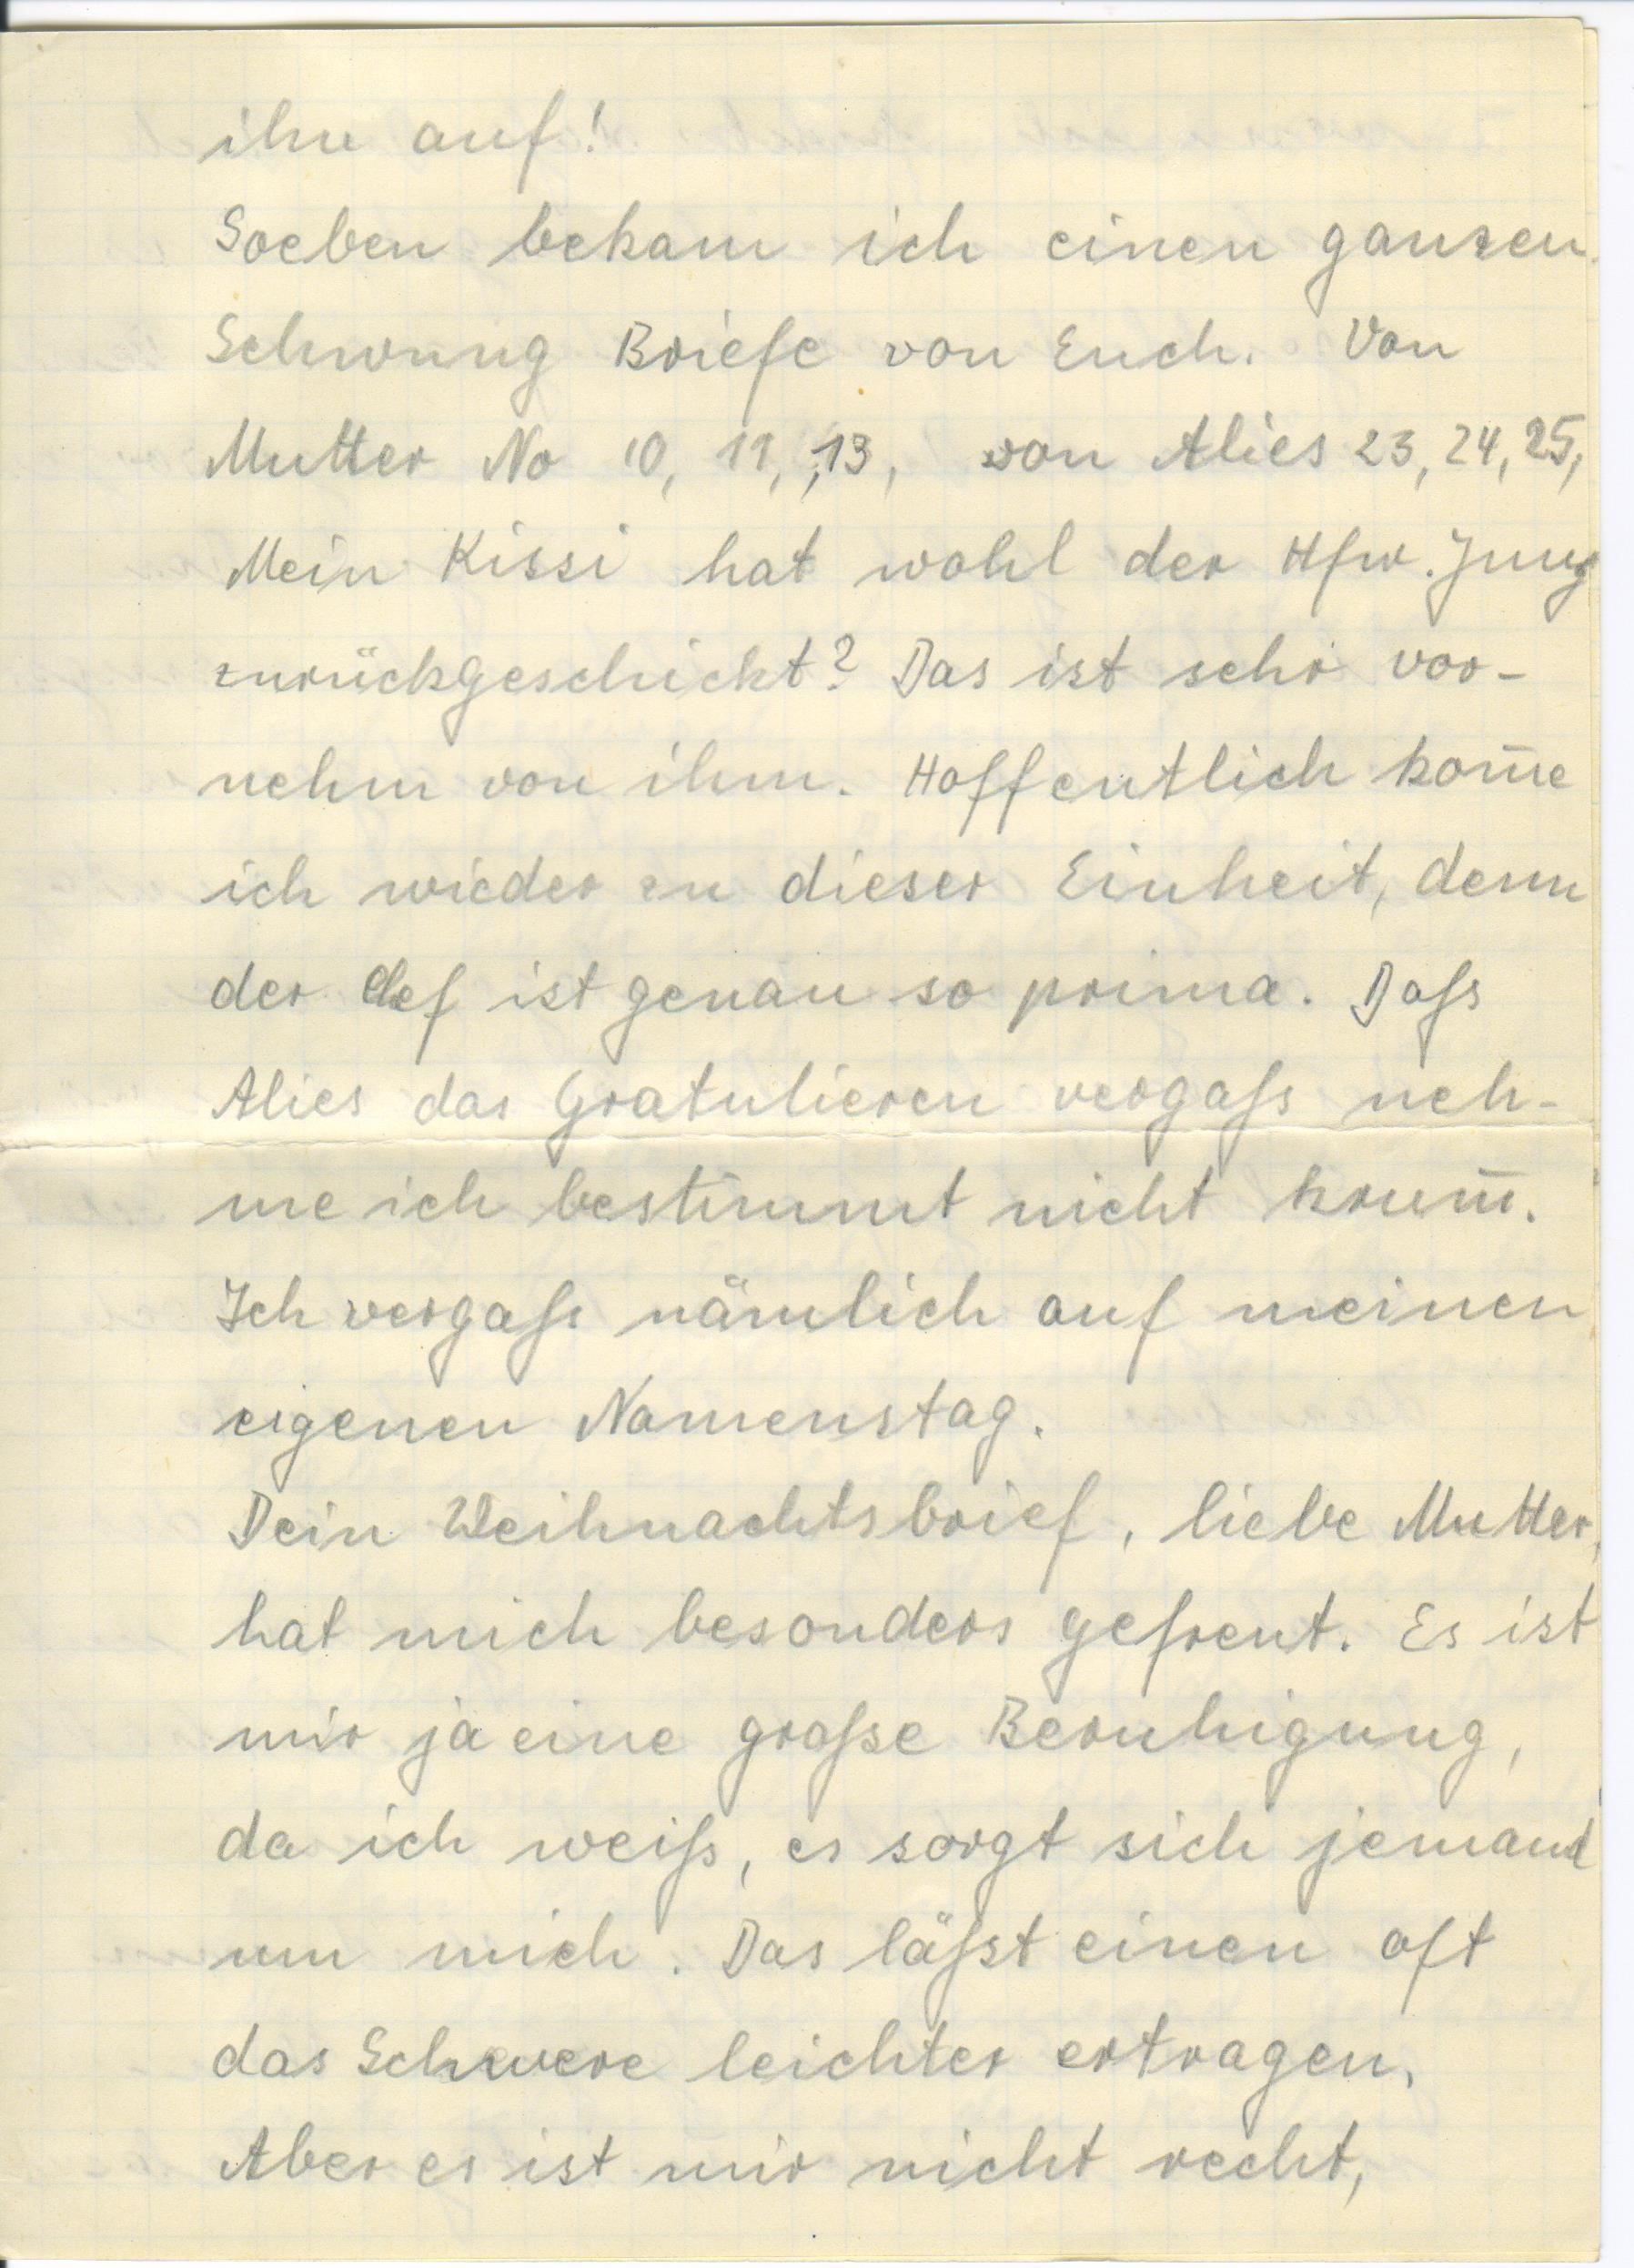 ihn auf!
Soeben bekam ich einen ganzen
Schwung Briefe von Euch. Von
Mutter No 10, 11, 13, von Alies 23, 24, 25,
Mein Kissi hat wohl der Hfw. Jung
zurückgeschickt? Das ist sehr vor-
nehm von ihm. Hoffentlich kom̄e
ich wieder zu dieser Einheit, denn
der Chef ist genau so prima. Dass
Alies das Gratulieren vergass neh-
me ich bestimmt nicht krum̄.
Ich vergass nämlich auf meinen
eigenen Namenstag.
Dein Weihnachtsbrief, liebe Mutter,
hat mich besonders gefreut. Es ist
mir ja eine grosse Beruhigung,
da ich weiss, es sorgt sich jemand
um mich. Das lässt einen oft
das Schwere leichter ertragen.
Aber es ist mir nicht recht,